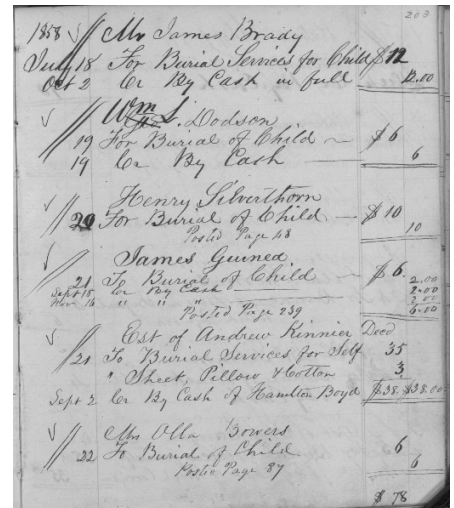 203
1858 Mr James Brady
July 18 For Burial Services for Child $12
Oct 2 Cr By Cash in full 12.00
Wm L. Dodson
19 For Burial of Child $6
19 Cr By Cash 6
Henry Silverthorn
20 For Burial of Child $10
Posted Page 48 10
James Guined
21 To Burial of Child $6.
Sept 18 Cr By Cash 2.00
2.00
Nov 16 " " " 2.00
Posted Page 239 6.00
Est of Andrew Kinnier Decd
21 To Burial Services for Self 35
" Sheet, Pillow & Cotton 3
Sept 2 Cr By Cash of Hamilton Boyd $38. $38.00
Mrs Olla Bowers
22 To Burial of Child 6
Posted Page 87 6
$ 78